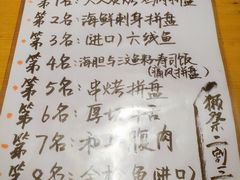 第2名:海鲜刺身拼盘
第3名:(进口)六线鱼
第4名:海胆与三文鱼籽寿司饭
(痛风拼盘)
第5名:串烤拼盘
第6名:厚切牛舌
第7名:和牛腹肉
第8名:
(进口)
獭祭二割三